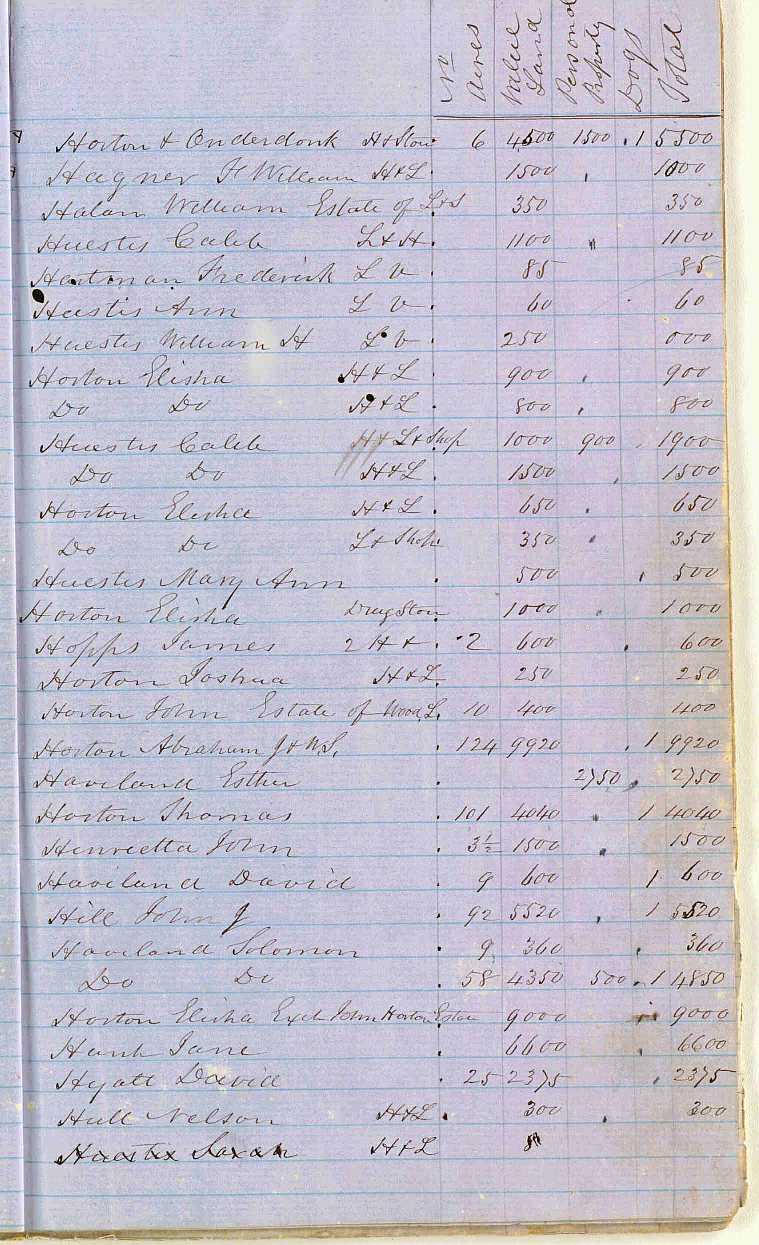 No Acres Value Land Personal Property Dogs Total
Horton & Onderdonk H & Store 6 4500 1500 1 5500
Hagner F William H & L 1500 1000
Halan William Estate of L & S 350 350
Huestis Caleb L & H 1100 1100
Hartman Frederick L V 85 85
Hestis Ann L V 60 60
Huestis William H L V 250 000
Horton Elisha H & L 900 900
Do Do H & L 800 800
Huestis Caleb H & L & Shop 1000 900 1900
Do Do H & L 1500 1500
Horton Elisha H & L 650 650
Do Do L & Shop 350 350
Huestis Mary Ann 500 500
Horton Elisha Drug Store 1000 1000
Hopps James 2 H & 2 600 600
Horton Joshua H & L 250 250
Horton John Estate of Wood L. 10 400 400
Horton Abraham J & W.S. 124 9920 1 9920
Haviland Esther 2750 2750
Horton Thomas 101 4040 1 4040
Henrietta John 3½ 1500 1500
Haviland David 9 600 1 600
Hill John J 92 5520 1 5520
Haviland Solomon 9 360 360
Do Do 58 4350 500 1 4850
Horton Elisha Exct John Horton Estate 9000 9000
Hank Jane 6600 6600
Hyatt David 25 2375 2375
Hull Nelson H & L 300 300
Huestis Sarah H & L